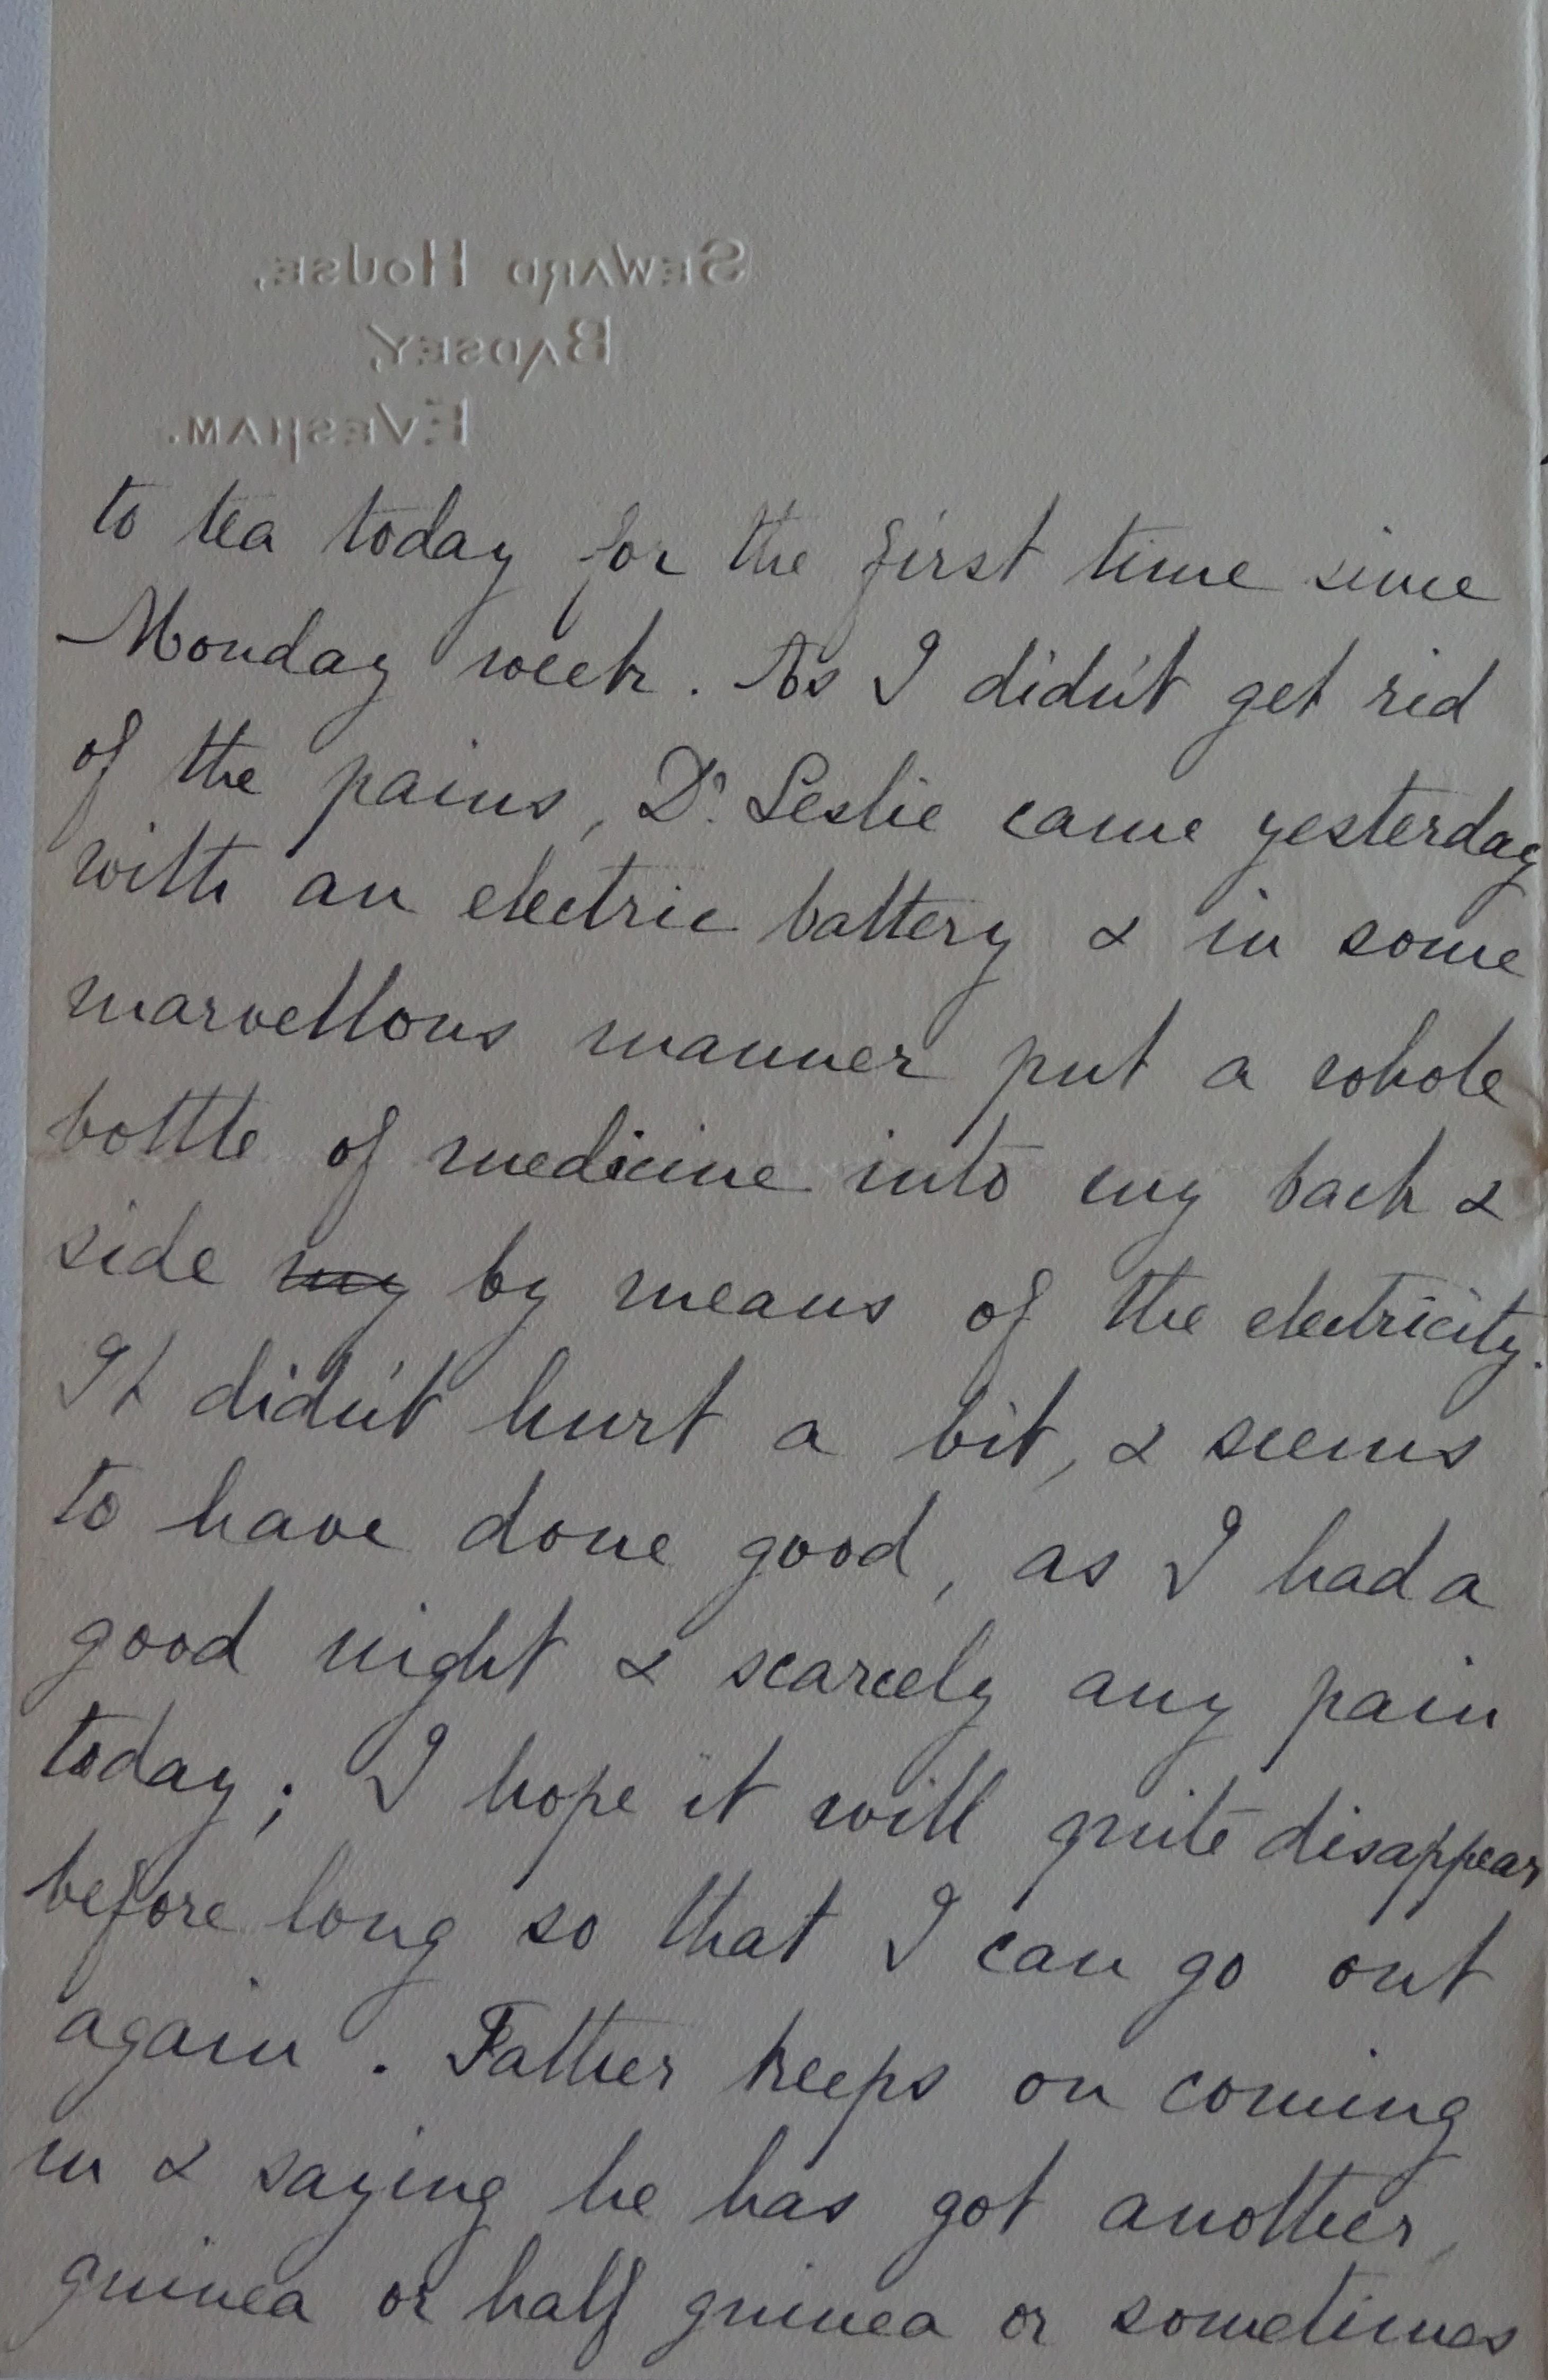 Seward House,
Badsey,
Evesham.
to tea today for the first time since
Monday week. As I didn't get rid
of the pains, Dr. Leslie came yesterday
with an electric battery & in some
marvellous manner put a whole
bottle of medicine into my back &
side my by means of the electricity.
It didn't hurt a bit, & seems
to have done good, as I had a
good night & scarcely any pain
today; I hope it will quite disappear
before long so that I can go out
again. Father keeps on coming
in & saying he has got another,
guinea or half guinea or sometimes